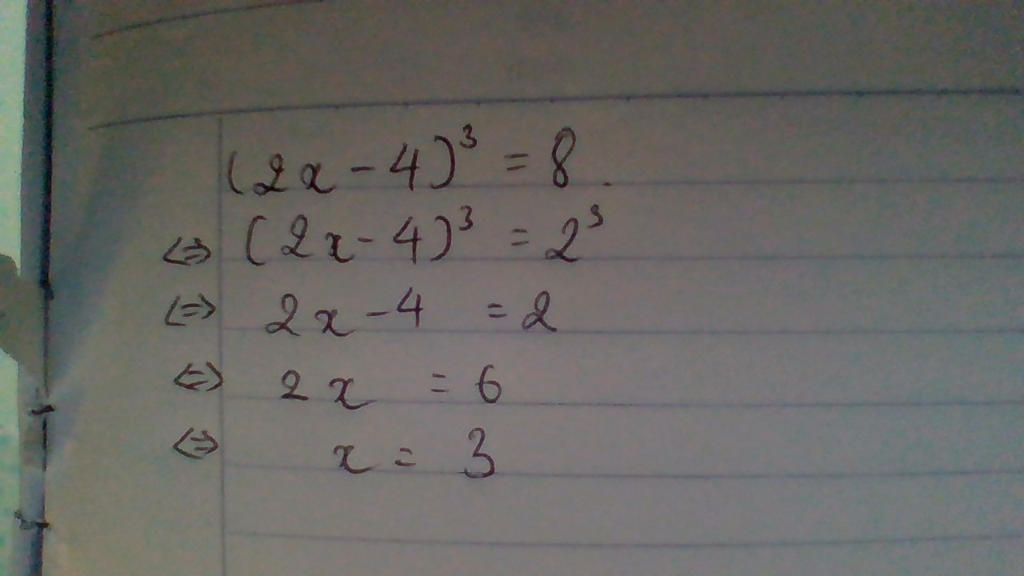 (2x - 4)³ = 8.
<=> (2x - 4)³ = 2³
<=> 2x - 4 = 2
<=> 2x = 6
<=> x = 3